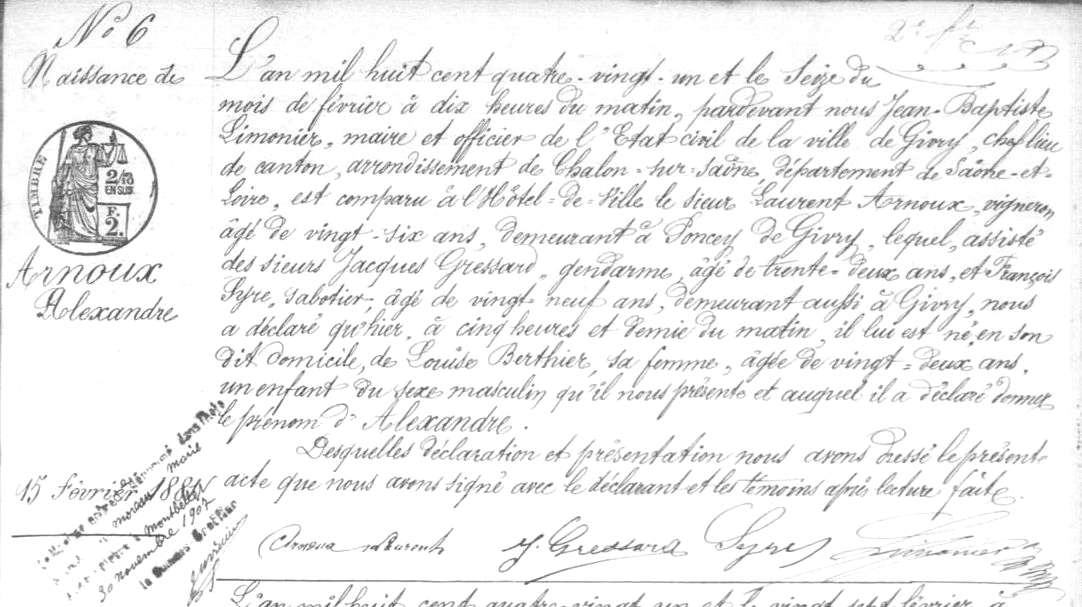 N° 6
Naissance de
Arnoux
Alexandre
15 Février 1881
TIMBRE
2/10
EN SUS
F.
2.
L'an mil huit cent quatre-vingt-un et le Seize du
mois de février à dix heures du matin, pardevant nous Jean-Baptiste
Limonier, maire et officier de l'Etat civil de la ville de Givry, chef lieu
de canton, arrondissement de Chalon-sur-Saône, département de Saône-et-
Loire, est comparu à l'Hôtel-de-Ville le sieur Laurent Arnoux, vigneron
âgé de vingt-six ans, demeurant à Poncey de Givry, lequel, assisté
des sieurs Jacques Gressard, gendarme, âgé de trente-deux ans, et François
Syre, sabotier, âgé de vingt neuf ans, demeurant aussi à Givry, nous
a déclaré qu'hier, à cinq heures et demie du matin, il lui est né, en son
dit domicile, de Louise Berthier, sa femme, âgée de vingt-deux ans,
un enfant du sexe masculin qu'il nous présente et auquel il a déclaré donner
le prénom d'Alexandre.
Desquelles déclaration et présentation nous avons dressé le présent
acte que nous avons signé avec le déclarant et les témoins après lecture faite.
dénommé dans l'acte
marié
moreau
à Montbellet
30 novembre 1907
le Greffier
Arnoux Laurent J. Gressard Syre Limonier
L'an mil huit cent quatre-vingt un et le vingt sept février à